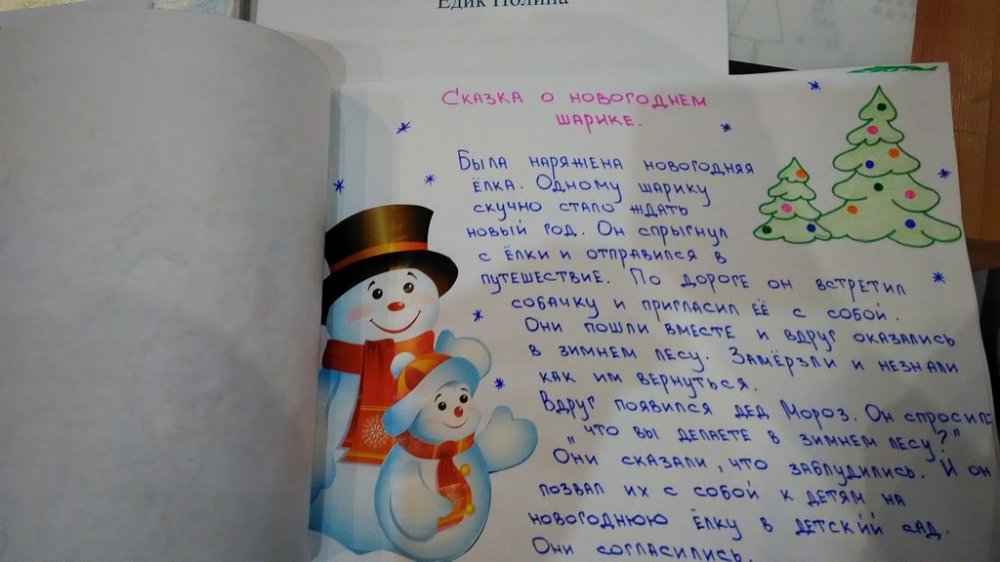 Едик Полина
Сказка о новогоднем
шарике.
Была наряжена новогодняя
ёлка. Одному шарику
скучно стало ждать
новый год. Он спрыгнул
с ёлки и отправился в
путешествие. По дороге он встретил
собачку и пригласил её с собой.
Они пошли вместе и вдруг оказались
в зимнем лесу. Замёрзли и незнали
как им вернуться.
Вдруг появился дед Мороз. Он спросил:
„что вы делаете в зимнем лесу?"
Они сказали, что заблудились. И он
позвал их с собой к детям на
новогоднюю ёлку в детский сад.
Они согласились.